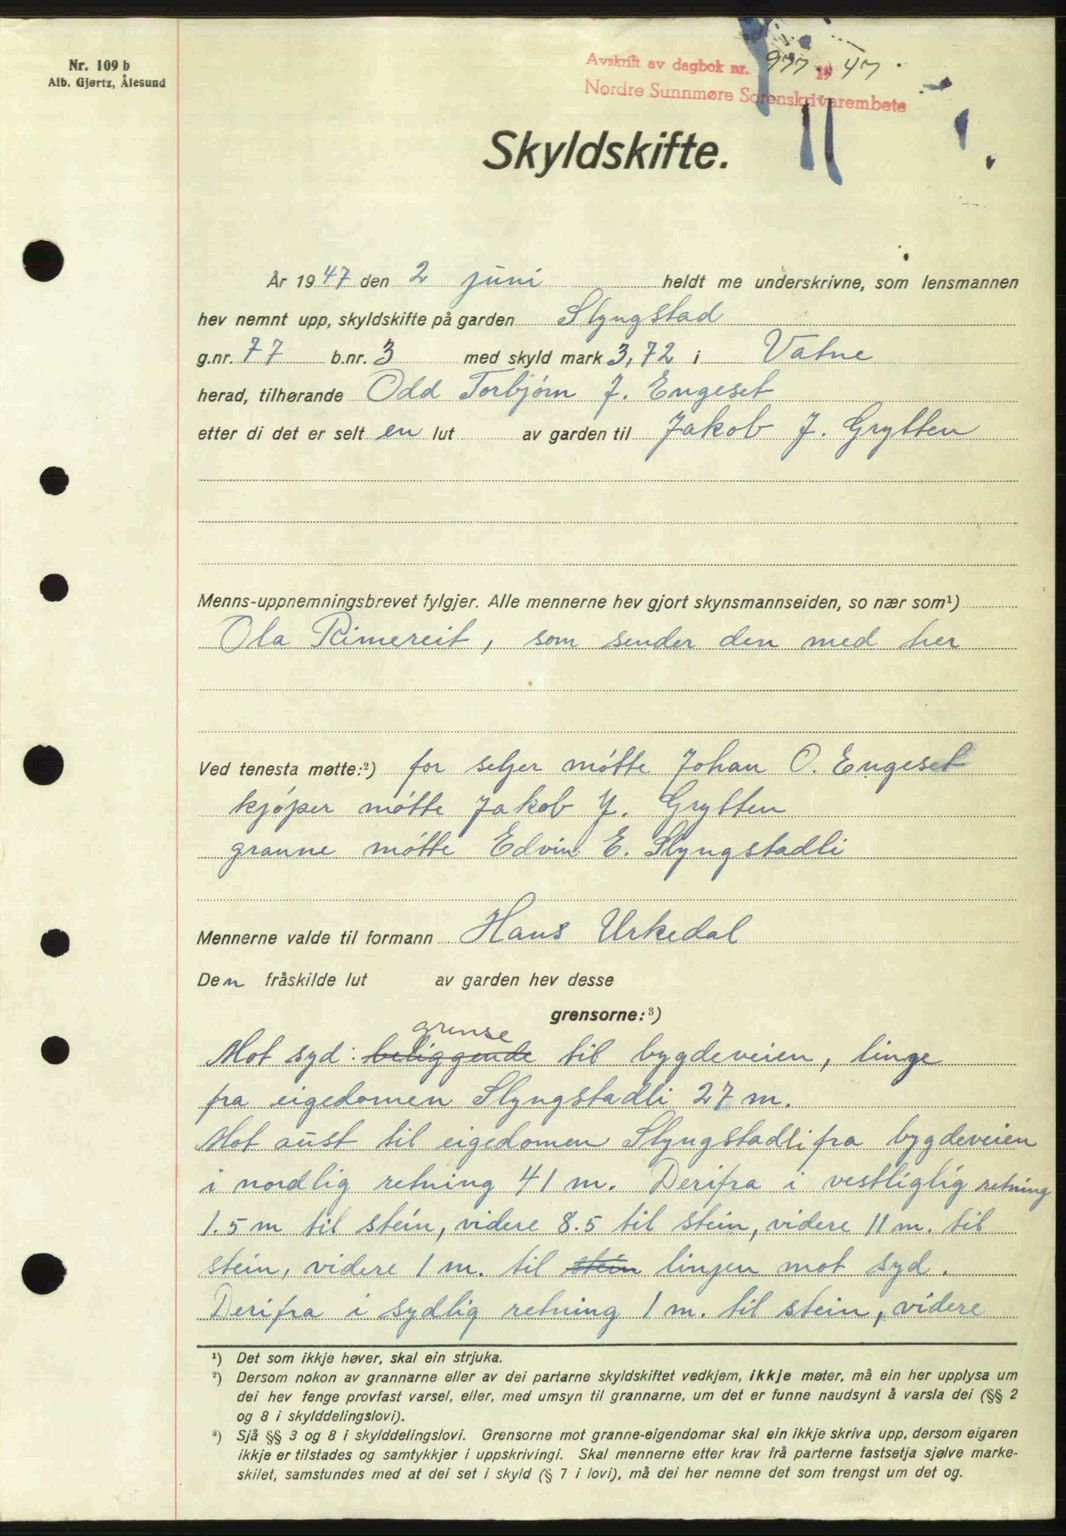 Nr. 109 b
Alb. Gjørtz, Ålesund
Avskrift av dagbok nr. 977 1947
Nordre Sunnmøre Sorenskrivarembete
Skyldskifte.
År 1947 den 2 juni heldt me underskrivne, som lensmannen
hev nemnt upp, skyldskifte på garden Slyngstad
g.nr. 77 b.nr. 3 med skyld mark 3,72 i Vatne
herad, tilhørande Odd Torbjørn J. Engeset
etter di det er selt en lut av garden til Jakob J. Grytten
Menns-uppnemningsbrevet fylgjer. Alle mennerne hev gjort skynsmannseiden, so nær som¹)
Ola Rimereit, som sender den med her
Ved tenesta møtte:²) for seljer møtte Johan O. Engeset
kjøper møtte Jakob J. Grytten
granne møtte Edvin E. Slyngstadli
Mennerne valde til formann Hans Urkedal
Den fråskilde lut av garden hev desse
grensorne:³)
grense
Mot syd: beliggende til bygdeveien, linge
fra eigedomen Slyngstadli 27 m.
Mot aust til eigedomen Slyngstadli fra bygdeveien
i nordlig retning 41 m. Derifra i vestliglig retning
1.5 m til stein, videre 8.5 til stein, videre 11 m. til
stein, videre 1 m. til stein linjen mot syd.
Derifra i sydlig retning 1 m. til stein, videre
¹) Det som ikkje høver, skal ein strjuka.
²) Dersom nokon av grannarne eller av dei partarne skyldskiftet vedkjem, ikkje møter, må ein her upplysa um
dei hev fenge provfast varsel, eller, med umsyn til grannarne, um det er funne naudsynt å varsla dei (§§ 2
og 8 i skylddelingslovi).
³) Sjå §§ 3 og 8 i skylddelingslovi. Grensorne mot granne-eigendomar skal ein ikkje skriva upp, dersom eigaren
ikkje er tilstades og samtykkjer i uppskrivingi. Skal mennerne etter krav frå parterne fastsetja sjølve marke-
skilet, samstundes med at dei set i skyld (§ 7 i lovi), må dei her nemne det som trengst um det og.